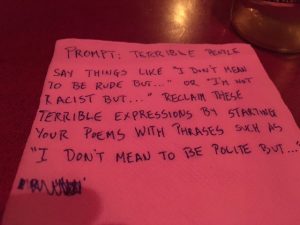 PROMPT: TERRIBLE PEOPLE
SAY THINGS LIKE "I DON'T MEAN
TO BE RUDE BUT..." OR "I'M NOT
RACIST BUT..." RECLAIM THESE
TERRIBLE EXPRESSIONS BY STARTING
YOUR POEMS WITH PHRASES SUCH AS
"I DON'T MEAN TO BE POLITE BUT..."